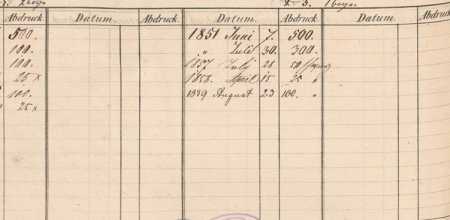 Abdruck. Datum. Abdruck. Datum. Abdruck. Datum. Abdruck
500. 1851 Juni 7. 500.
100. " Juli 30. 300.
100. Juli 50
25 x 1858. April 15 25 "
100. 1889 August 23 100. "
25 x